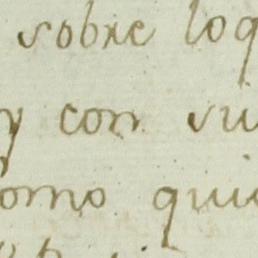 sobre loq
y con su
omo qui